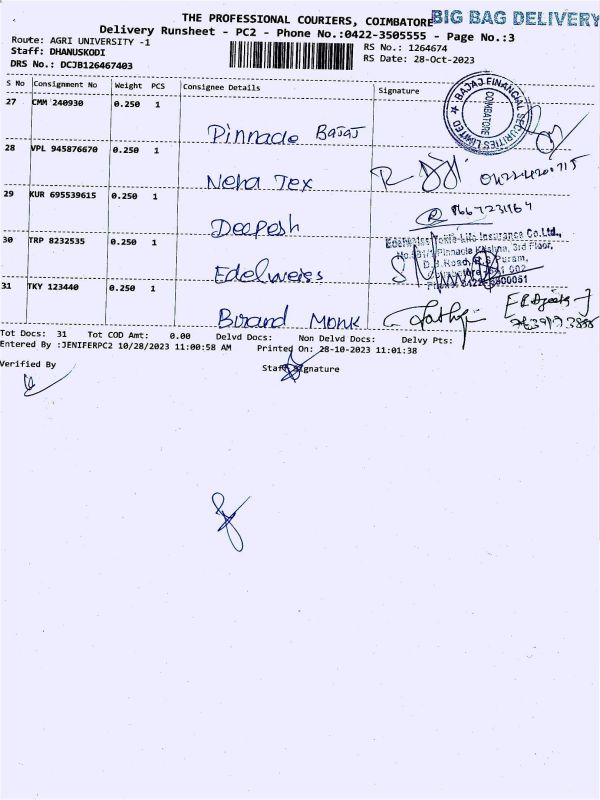 THE PROFESSIONAL COURIERS, COIMBATORE BIG BAG DELIVERY
Delivery Runsheet - PC2 - Phone No.:0422-3505555 - Page No.:3
Route: AGRI UNIVERSITY -1
RS No.: 1264674
Staff: DHANUSKODI
RS Date: 28-Oct-2023
DRS No.: DCJB126467403
S No Consignment No Weight PCS Consignee Details Signature
27 CMM 240930 0.250 1
Pinnacle Bajaj
BAJAJ FINANCIAL SECURITIES LIMITED
COIMBATORE
28 VPL 945876670 0.250 1
Neha Tex
29 KUR 695539615 0.250 1
Deepesh
30 TRP 8232535 0.250 1
Edelweiss
Edelweiss Tokio Life Insurance Co.Ltd.,
Pinnacle Krishna, 3rd Floor,
D.B.Road, R.S.Puram,
31 TKY 123440 0.250 1
Brand Monk
Tot Docs: 31 Tot COD Amt: 0.00 Delvd Docs: Non Delvd Docs: Delvy Pts:
Entered By :JENIFERPC2 10/28/2023 11:00:58 AM Printed On: 28-10-2023 11:01:38
Verified By
Staff Signature